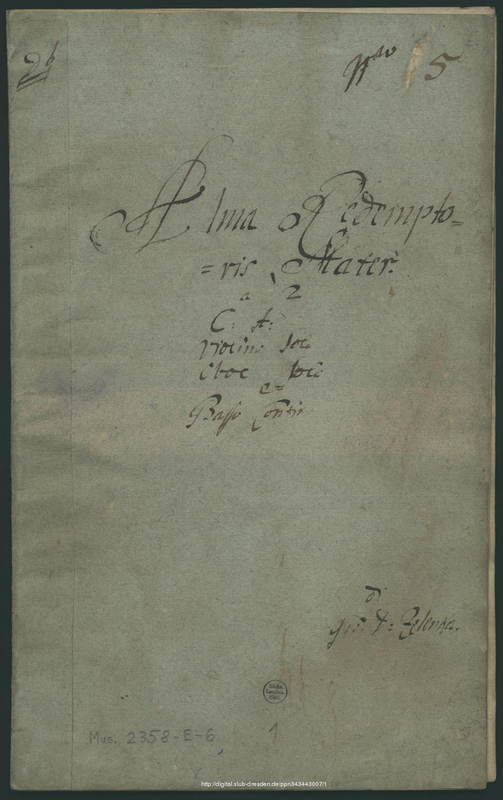 26
Nro 5
Alma Redempto=
=ris Mater:
a 2
C: A:
Violin: Soli
Oboe Soli
e
Basso Contin
di
Gio: D: Zelenka.
Mus. 2358-E-6
1
http://digital.slub-dresden.de/ppn343443007/1